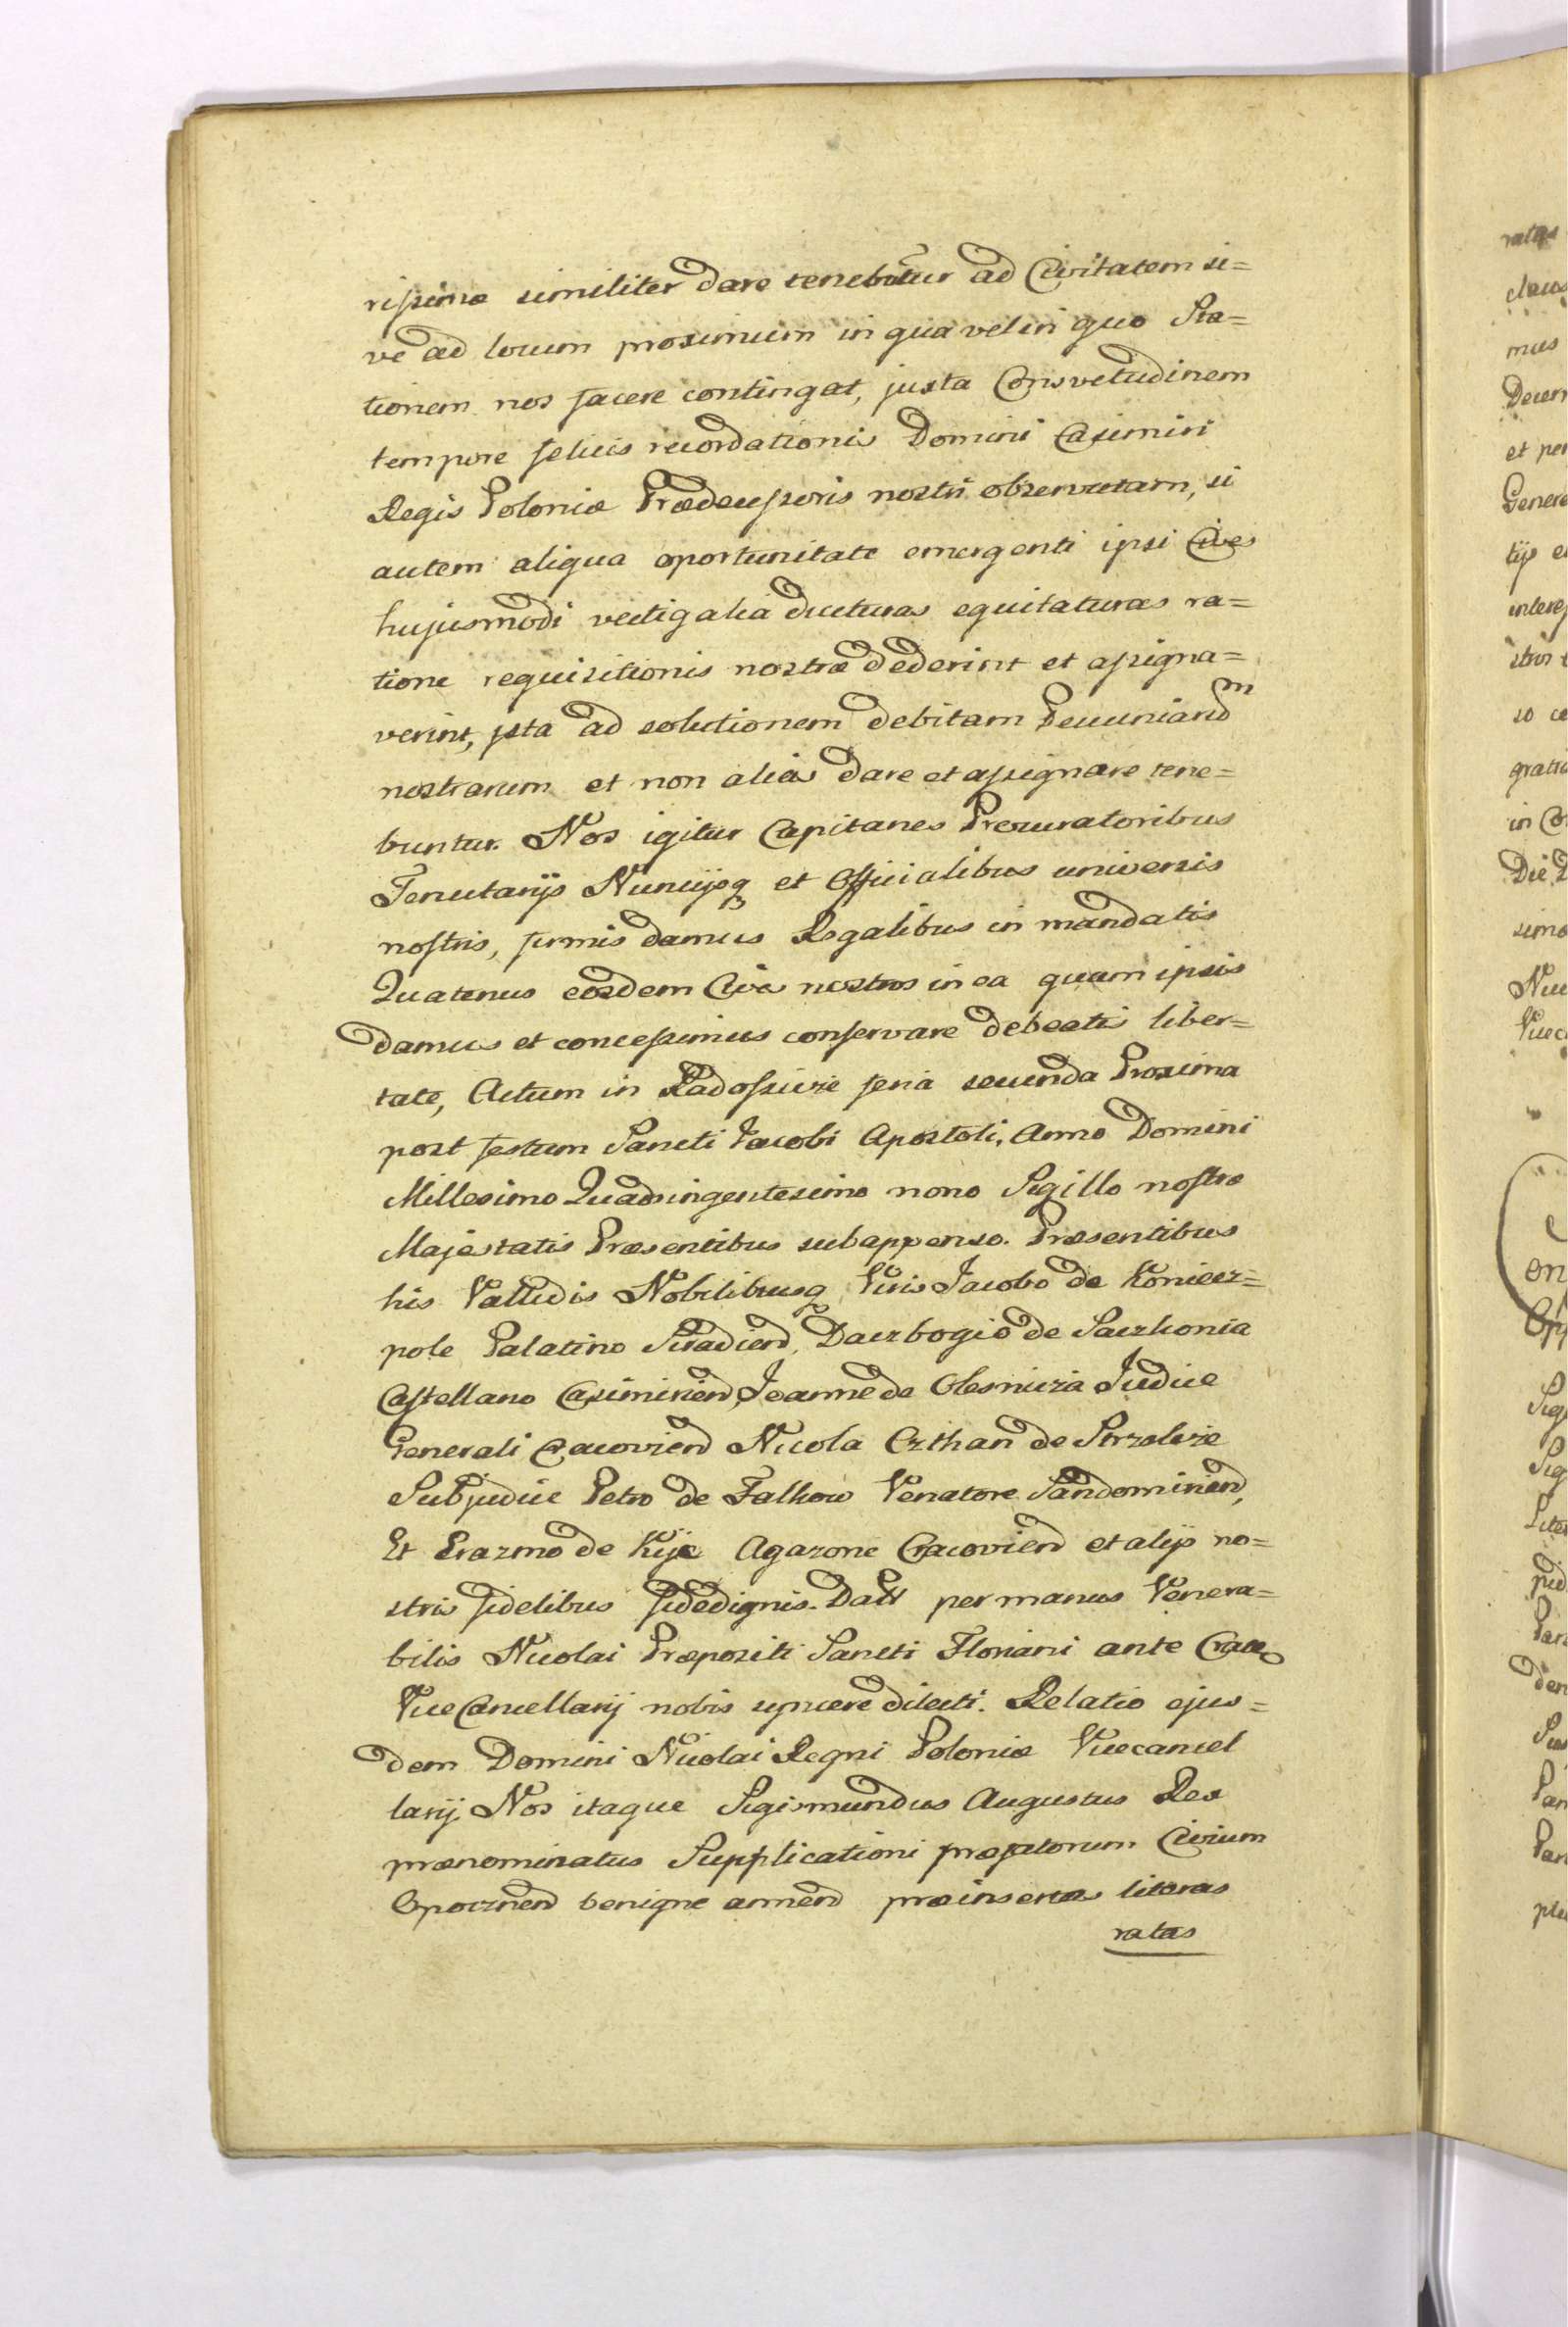 rissimæ similiter dare tenebuntur ad Civitatem si=
ve ad locum proximum in qua vel in quo Sta=
tionem nos facere contingat, juxta Consvetudinem
tempore felicis recordationis Domini Casimiri
Regis Poloniæ Prædecessoris nostri observatam, si
autem aliqua oportunitate emergenti ipsi Cives
hujusmodi vectigalia ducturas equitaturas ra=
tione requisitionis nostræ dederint et assigna=
verint, ista ad solutionem debitam Pecuniard m
nostrarum et non alias dare et assignare tene=
buntur. Nos igitur Capitaneis Procuratoribus
Tenutarijs Nuncijsq et Officialibus universis
nostris, firmis damus Regalibus in mandatis
Quatenus eosdem Cives nostros in ea quam ipsis
damus et concessimus conservare debeatis liber=
tate, Actum in Radossicze feria secunda Proxima
post festum Sancti Jacobi Apostoli, Anno Domini
Millesimo Quadringentesimo nono Sigillo nostræ
Majestatis Præsentibus subappenso. Præsentibus
his Vallidis Nobilibusq Viris Jacobo de Koniecz=
pole Palatino Siradiend, Daczbogio de Saczkonia
Castellano Casimiriend, Joanne de Olesnicza Judice
Generali Cracoviend Nicola Czthan de Strzelcze
Subjudice Petro de Falkow Venatore Sandomiriend,
Et Erazmo de Kije Agazone Cracoviend et alijs no=
stris fidelibus fidedignis. Datt per manus Venera=
bilis Nicolai Præpositi Sancti Floriani ante Crac
ViceCancellarij nobis syncere dilecti. Relatio ejus=
dem Domini Nicolai Regni Poloniæ Vicecancel
larij Nos itaque Sigismundus Augustus Rex
prænominatus Supplicationi præfatorum Civium
Opocznend benigne annend præinsertas literas
ratas